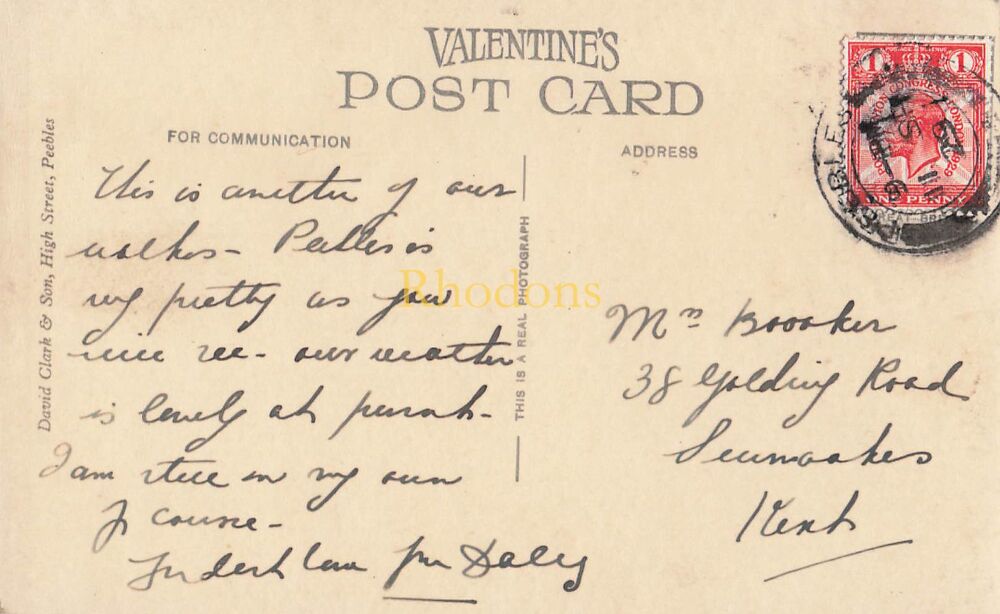 VALENTINE'S
POST CARD
FOR COMMUNICATION
ADDRESS
David Clark & Son, High Street, Peebles
THIS IS A REAL PHOTOGRAPH
This is another of our
walks - Peebles is
vy pretty as you
will see - our weather
is lovely at present -
I am still on my own
of course -
Fondest love fm Daley
Mrs Broooker
38 Golding Road
Sevenoakes
Kent
POSTAGE & REVENUE
1 1
POSTAL UNION CONGRESS LONDON 1929
ONE PENNY
PEEBLES
29
Rhodons